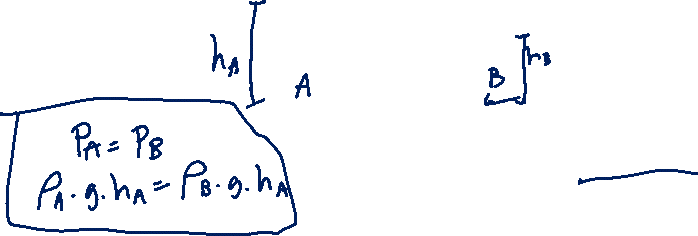 hA
A
B
hB
PA = PB
ρA · g · hA = ρB · g · hA